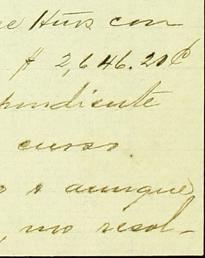 e Hnos con
$ 2,646.20¢
pondiente
curso
o a aunque
, no resol-